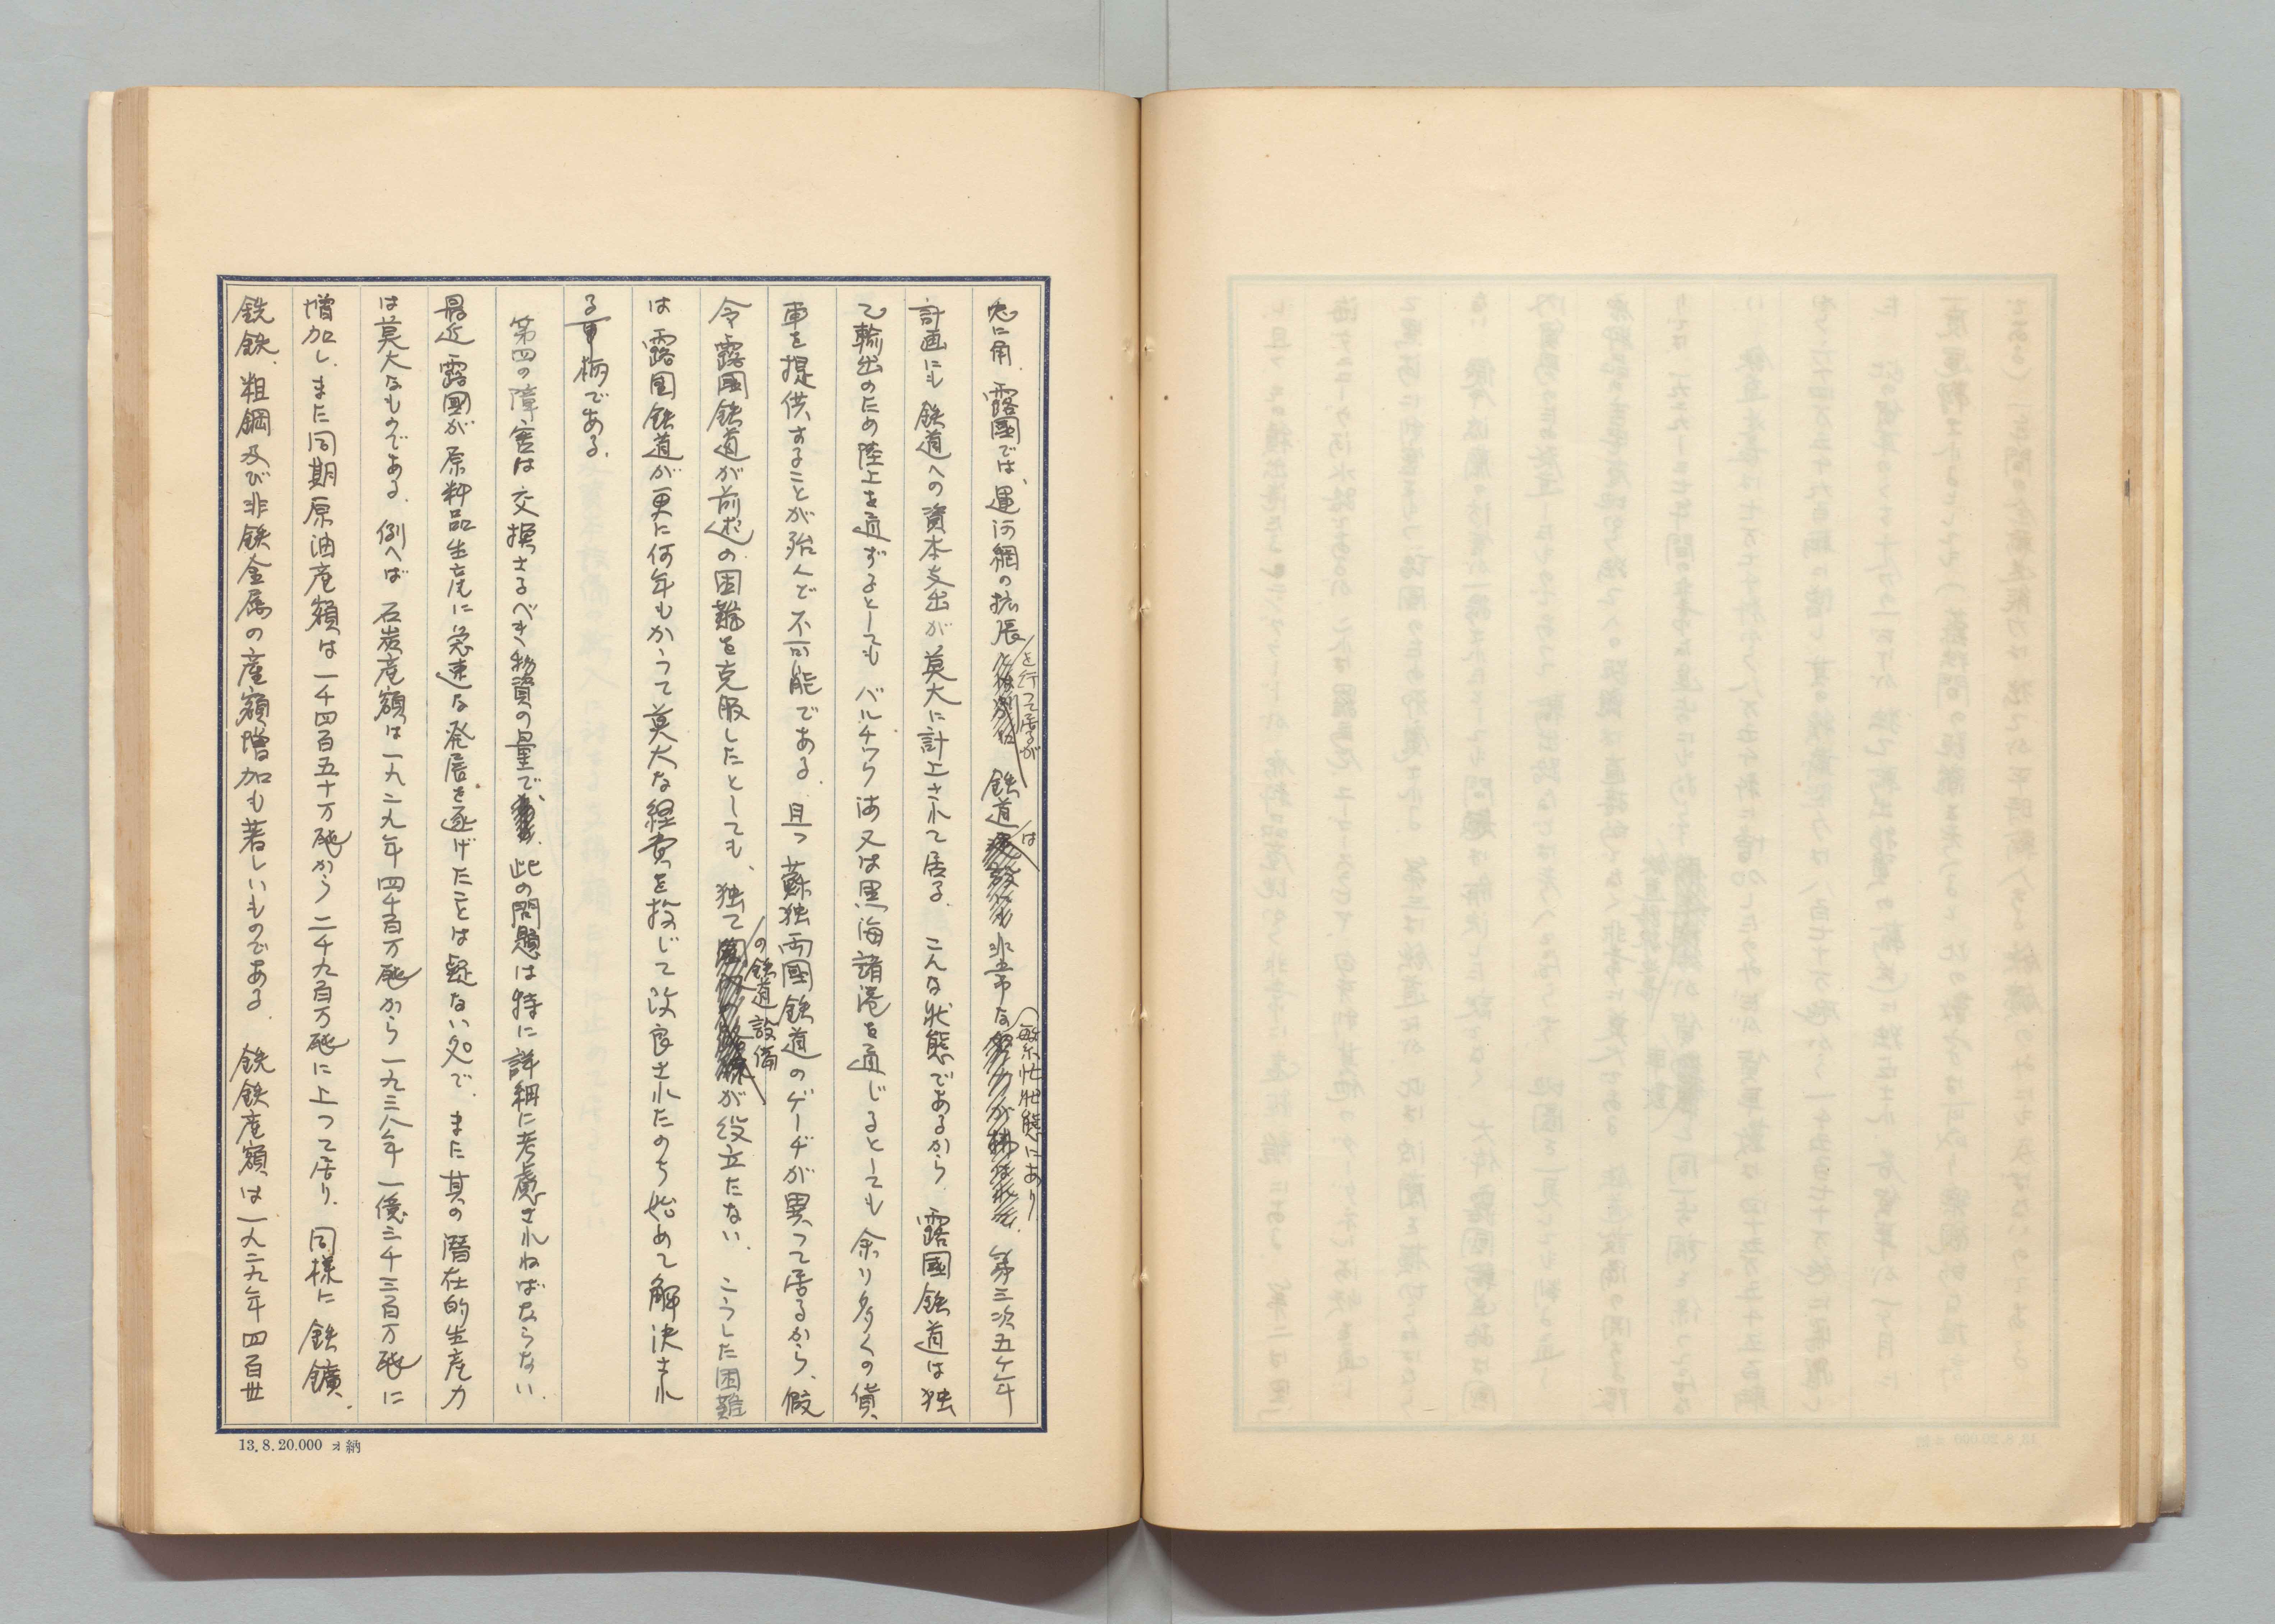 兎に角、露國では、運河網の拡張を行つて居るが鉄道は非常な繁忙状態にあり、第三次五ケ年
計画にも鉄道への資本支出が莫大に計上されて居る。こんな状態であるから露國鉄道は独
乙輸出のため陸上を通ずるとしてもバルチツク海又は黒海諸港を通じるとしても余り多くの貨
車を提供することが殆んど不可能である。且つ蘇独両國鉄道のゲーヂが異つて居るから、假
令露國鉄道が前述の困難を克服したとしても、独乙の鉄道設備が役立たない。こうした困難
は露国鉄道が更に何年もかつて莫大な経費を投じて改良されたのち始めて解決され
る事柄である。
第四の障害は交換さるべき物資の量で、此の問題は特に詳細に考慮されねばならない。
最近露國が原料品生産に急速な発展を遂げたことは疑ない処で、また其の潜在的生産力
は莫大なものである。例へば石炭産額は一九二九年四千百万瓲から一九三八年一億三千三百万瓲に
増加し、また同期原油産額は一千四百五十万瓲から二千九百万瓲に上つて居り、同様に鉄鑛、
銑鉄、粗鋼及び非鉄金属の産額増加も著しいものである。銑鉄産額は一九二九年四百卅
13.8.20.000 オ納